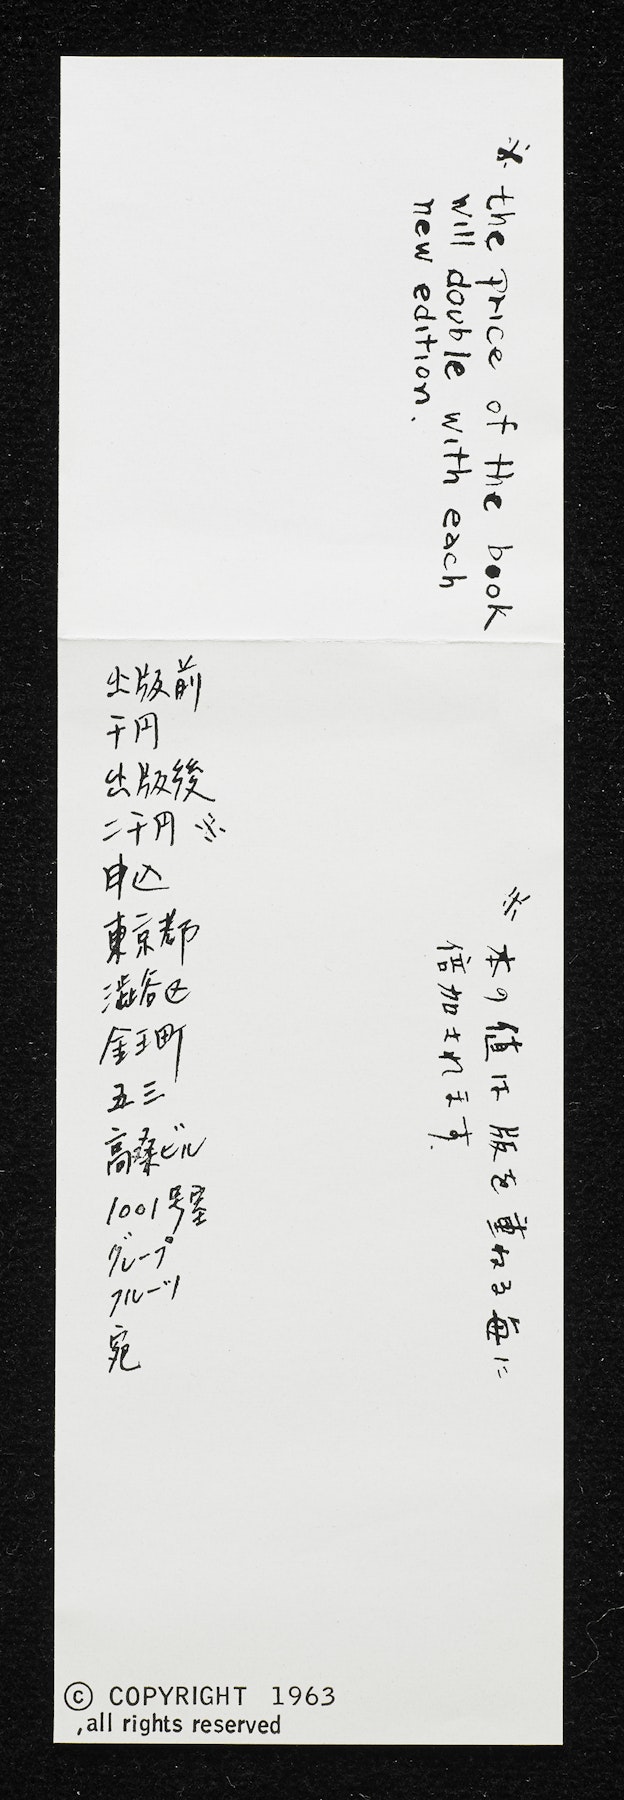 ※ the price of the book
will double with each
new edition.
出版前
千円
出版後
二千円 ※
申込
東京都
渋谷区
金王町
五三
高桑ビル
1001号室
グレープ
フルーツ
宛
※ 本の値は版を重ねる毎に
倍加されます.
© COPYRIGHT 1963
,all rights reserved